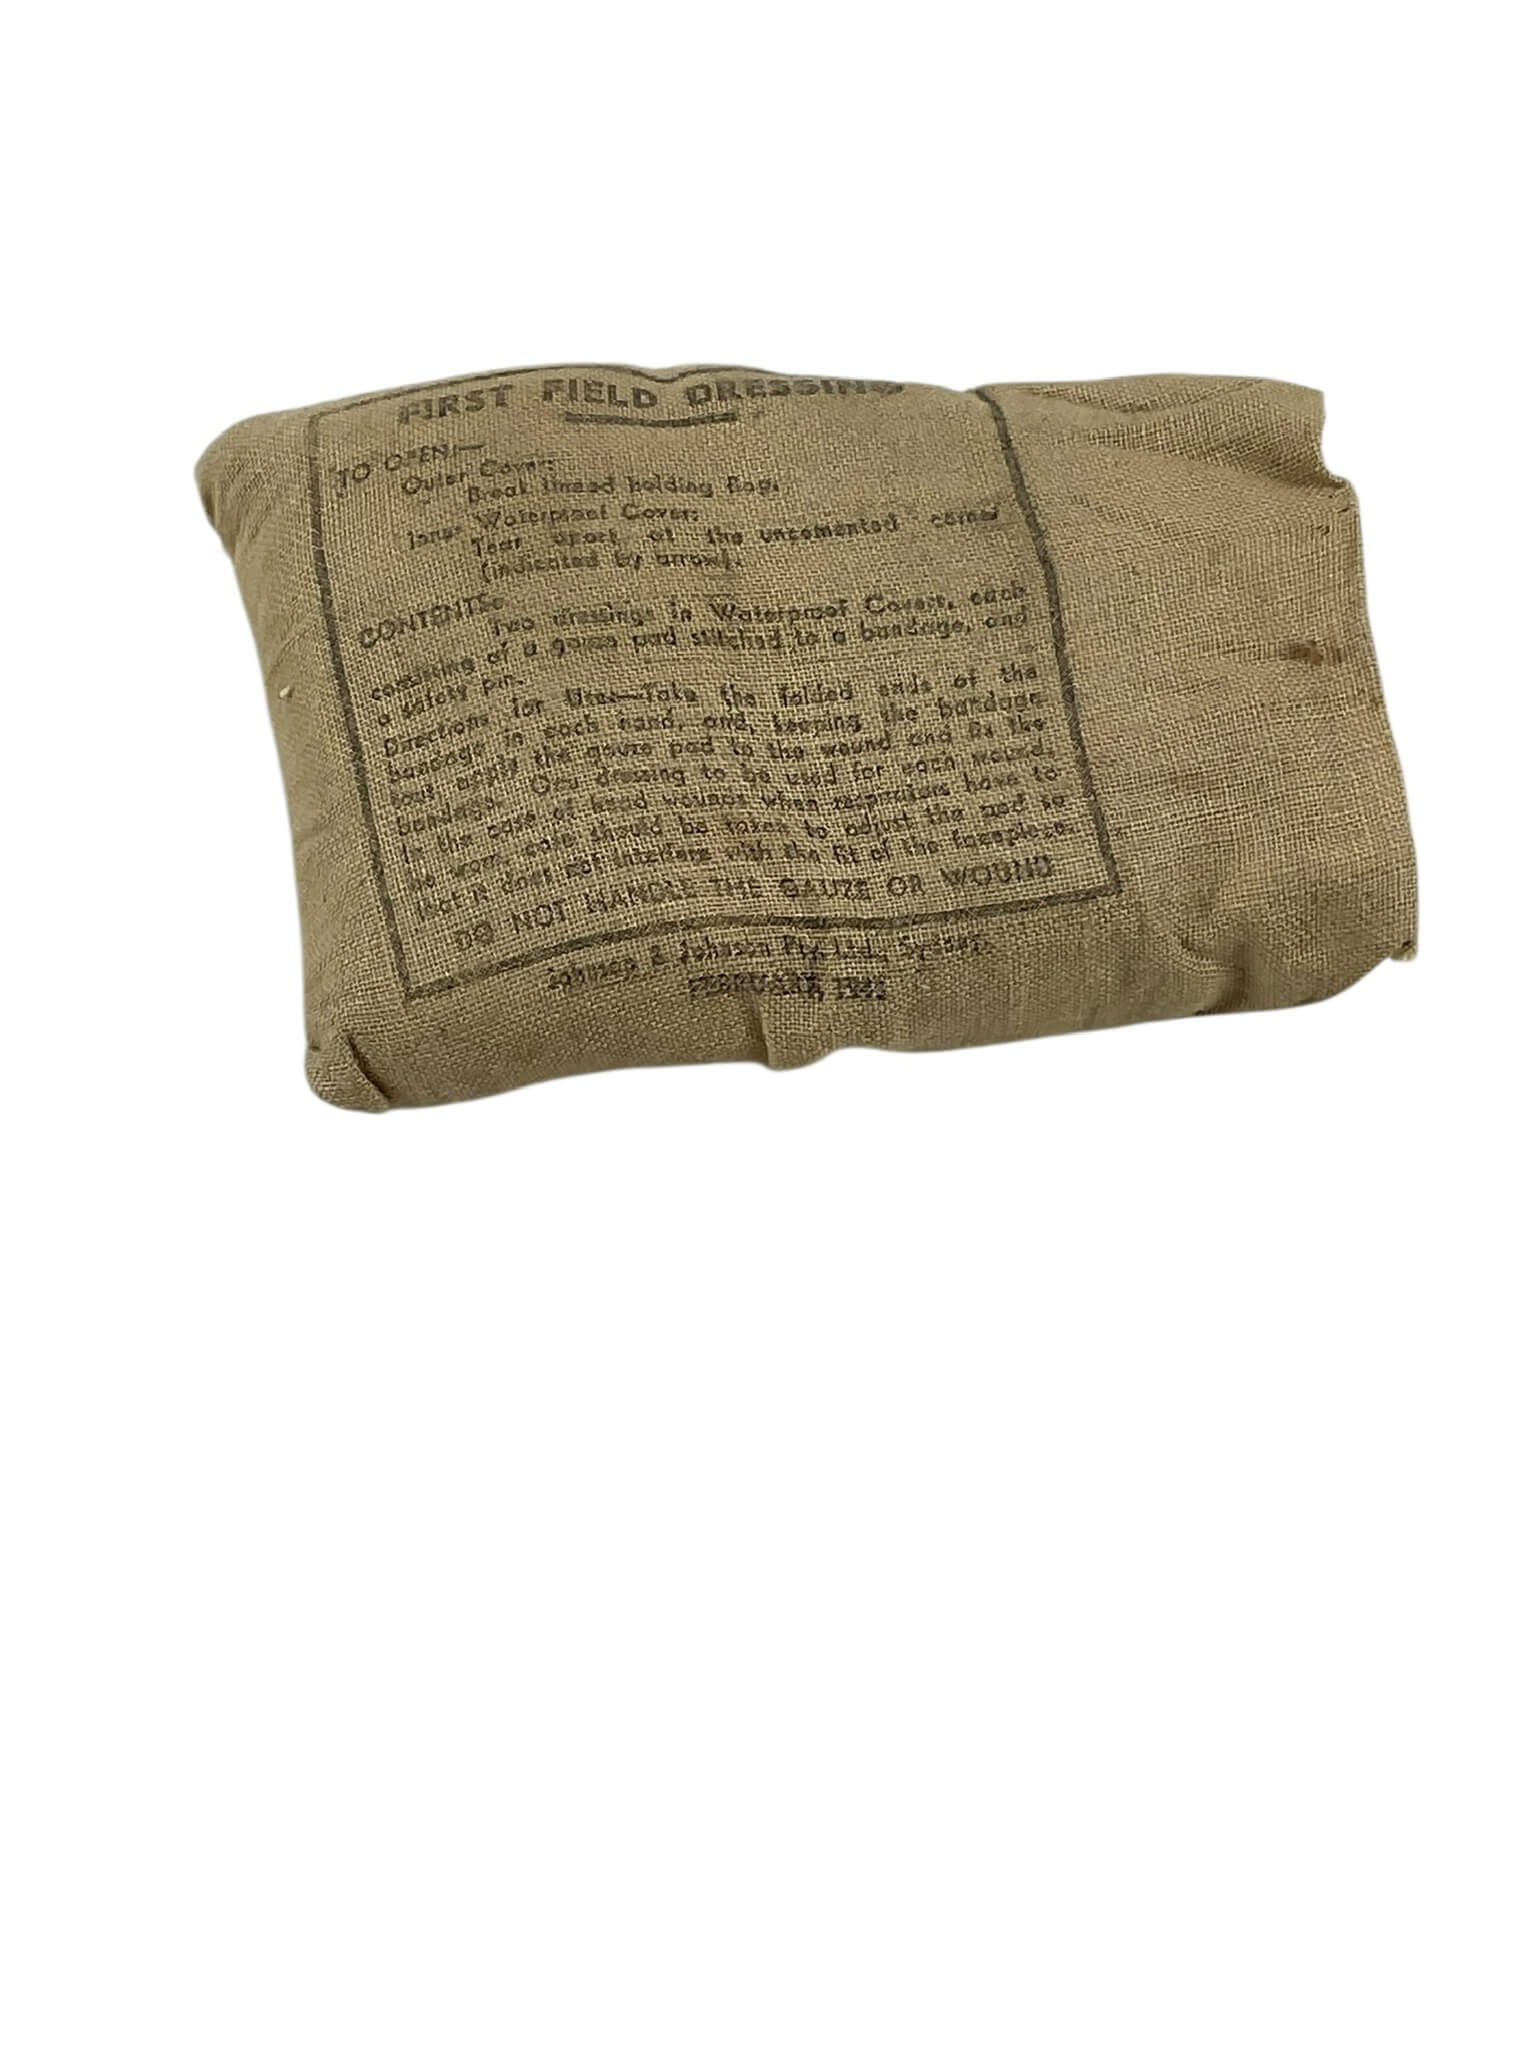 FIRST FIELD DRESSING
TO OPEN:—
Outer Cover:
Break thread holding flap.
Inner Waterproof Cover:
Tear apart at the uncemented corner
(indicated by arrow).
CONTENTS:
Two dressings in Waterproof Covers, each
consisting of a gauze pad stitched to a bandage, and
a safety pin.
Directions for Use:—Take the folded ends of the
bandage in each hand, and, keeping the bandage
taut apply the gauze pad to the wound and fix the
bandage. One dressing to be used for each wound.
In the case of head wounds when respirators have to
be worn, care should be taken to adjust the pad so
that it does not interfere with the fit of the facepiece.
DO NOT HANDLE THE GAUZE OR WOUND
Johnson & Johnson Pty. Ltd., Sydney.
FEBRUARY,